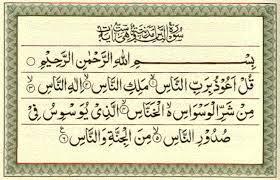 سُوْرَةُ النَّاسِ مَدَنِيَّةٌ
بِسْمِ اللهِ الرَّحْمٰنِ الرَّحِيْمِ
قُلْ اَعُوْذُ بِرَبِّ النَّاسِ ١ مَلِكِ النَّاسِ ٢ اِلٰهِ النَّاسِ ٣
مِنْ شَرِّ الْوَسْوَاسِ الْخَنَّاسِ ٤ الَّذِيْ يُوَسْوِسُ فِيْ
صُدُوْرِ النَّاسِ ٥ مِنَ الْجِنَّةِ وَالنَّاسِ ٦